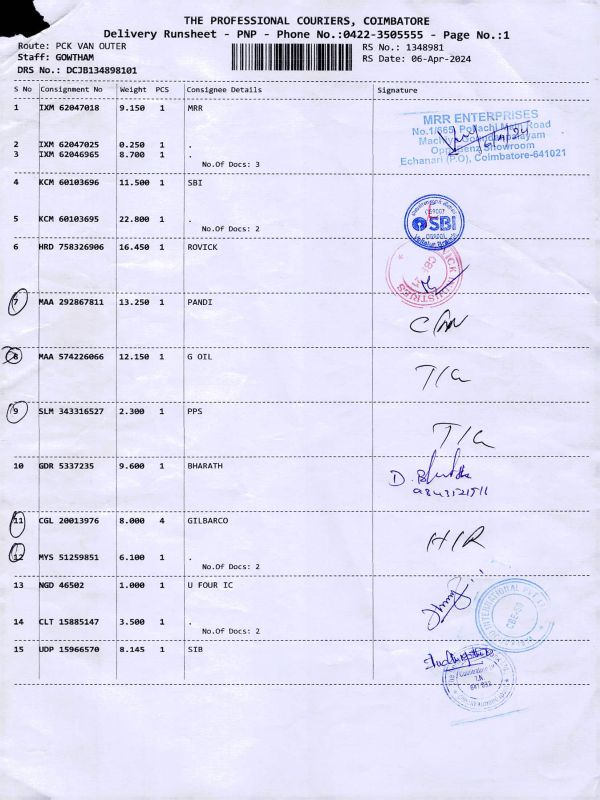 THE PROFESSIONAL COURIERS, COIMBATORE
Delivery Runsheet - PNP - Phone No.:0422-3505555 - Page No.:1
Route: PCK VAN OUTER RS No.: 1348981
Staff: GOWTHAM RS Date: 06-Apr-2024
DRS No.: DCJB134898101
S No Consignment No Weight PCS Consignee Details Signature
1 IXM 62047018 9.150 1 MRR
MRR ENTERPRISES
No.1/665, Pollachi Main Road
Opp. Benz Showroom
Echanari (P.O), Coimbatore-641021
2 IXM 62047025 0.250 1 .
3 IXM 62046965 8.700 1 .
No.Of Docs: 3
4 KCM 60103696 11.500 1 SBI
SBI
5 KCM 60103695 22.800 1 .
No.Of Docs: 2
6 HRD 758326906 16.450 1 ROVICK
7 MAA 292867811 13.250 1 PANDI
8 MAA 574226066 12.150 1 G OIL
T/C
9 SLM 343316527 2.300 1 PPS
T/C
10 GDR 5337235 9.600 1 BHARATH
11 CGL 20013976 8.000 4 GILBARCO
12 MYS 51259851 6.100 1 .
No.Of Docs: 2
13 NGD 46502 1.000 1 U FOUR IC
14 CLT 15885147 3.500 1 .
No.Of Docs: 2
15 UDP 15966570 8.145 1 SIB